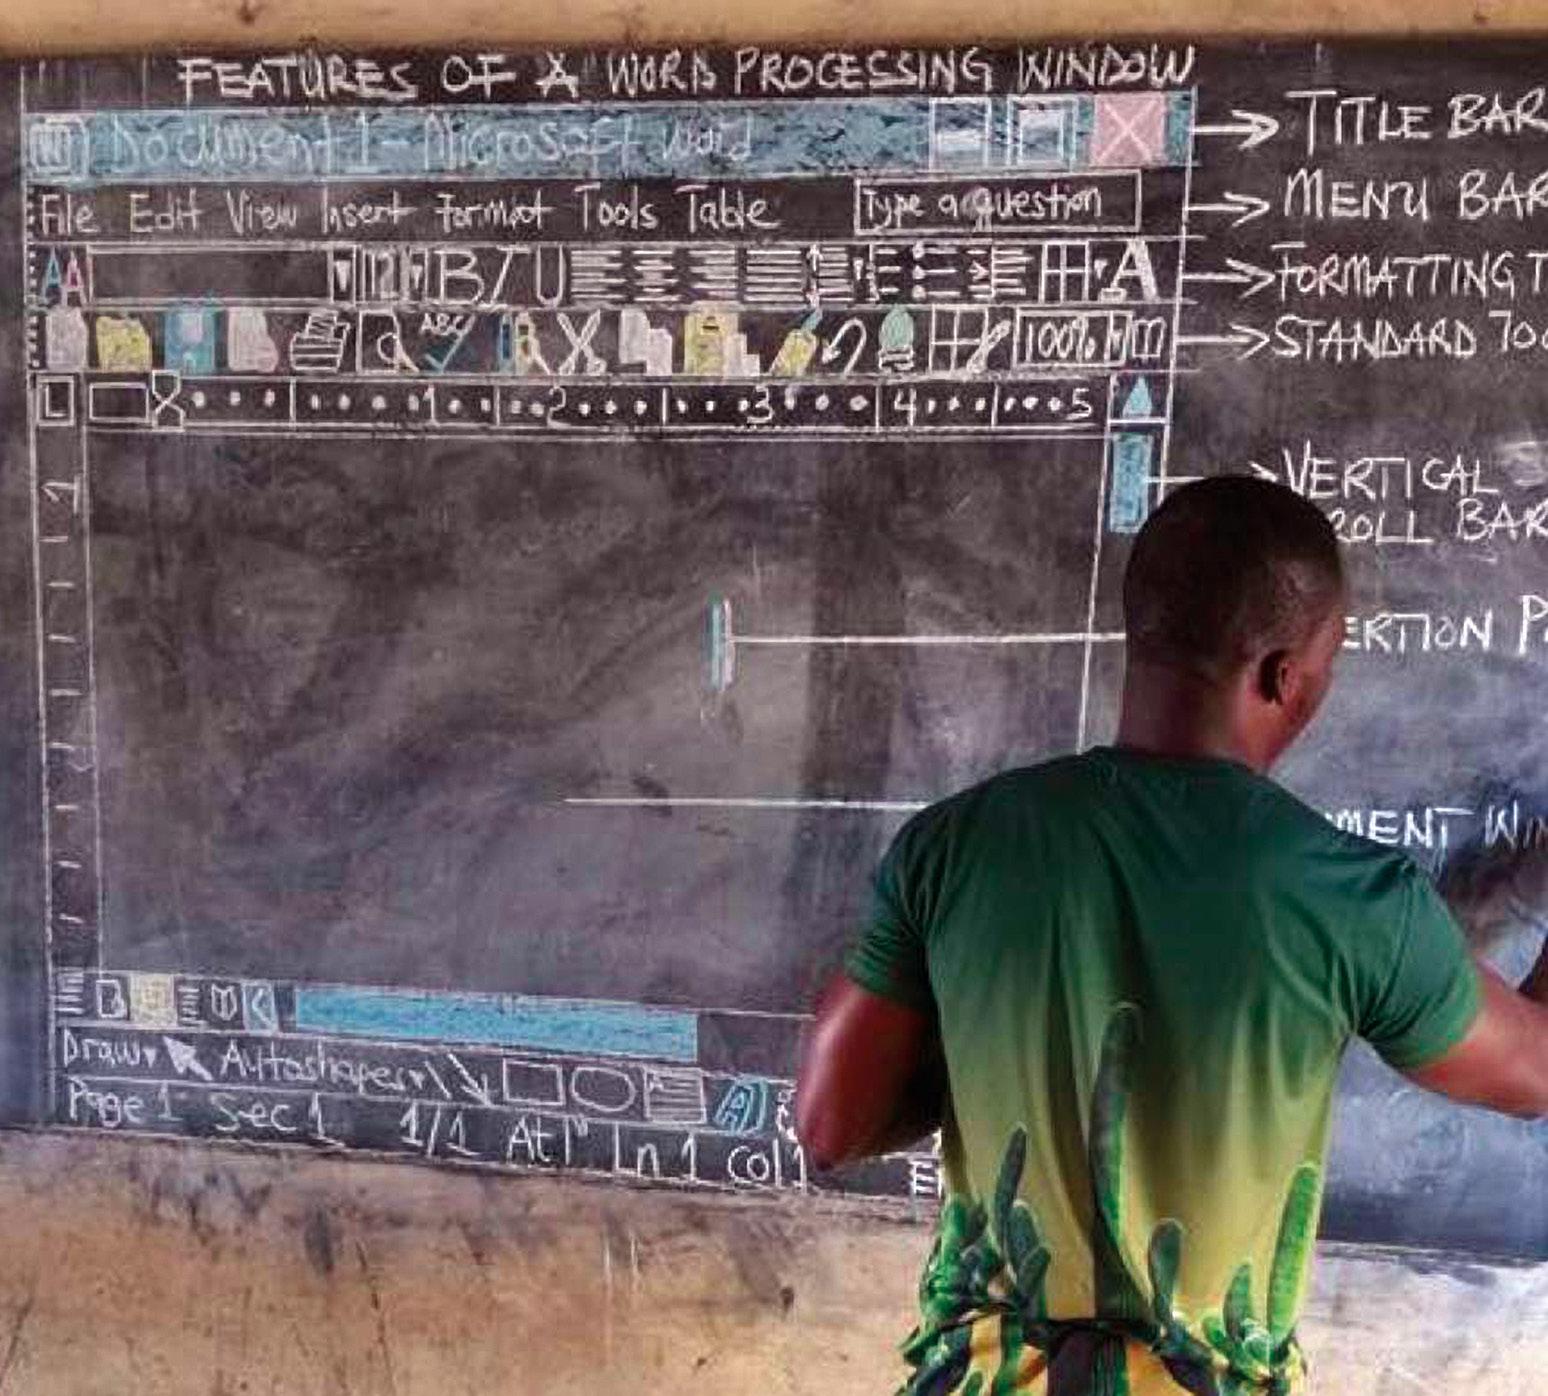 FEATURES OF A WORD PROCESSING WINDOW
Document 1 - Microsoft Word
TITLE BAR
File Edit View Insert Format Tools Table
Type a question
MENU BAR
AA
B I U
A
FORMATTING T
ABC
100%
STANDARD TOO
1 2 3 4 5
1
VERTICAL S
ROLL BAR
ERTION P
MENT WIN
Draw Autoshapes
Page 1 Sec 1 1/1 At 1" Ln 1 Col 1